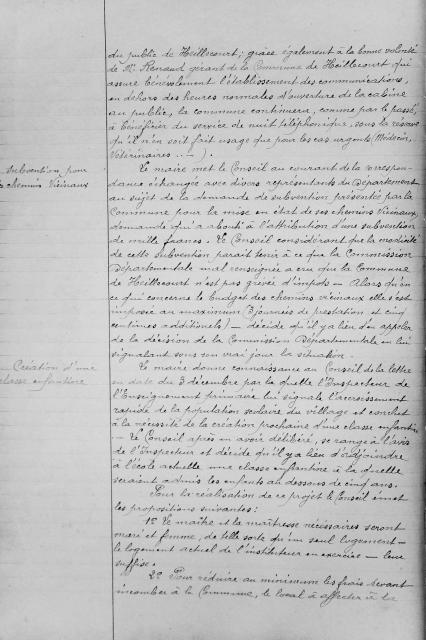 du public de Heillecourt ; grâce également à la bonne volonté
de Mr. Renaud gérant de la Commune de Heillecourt qui
assure bénévolement l'établissement des communications,
en dehors des heures normales d'ouverture de la cabine
au public, la commune continuera, comme par le passé,
à bénéficier du service de nuit téléphonique, sous la réserve
qu'il n'en soit fait usage que pour les cas urgents (Médecin,
Vétérinaires ...).
Subvention pour
les chemins Vicinaux
Le maire met le Conseil au courant de la correspon-
dance échangée avec divers représentants du Département
au sujet de la demande de subvention présentée par la
Commune pour la mise en état de ses chemins Vicinaux,
demande qui a abouti à l'attribution d'une subvention
de mille francs. Le Conseil considérant que la modicité
de cette subvention parait tenir à ce que la Commission
Départementale mal renseignée a cru que la Commune
de Heillecourt n'est pas grevée d'impôts — Alors qu'en
ce qui concerne le budget des chemins vicinaux elle s'est
imposée au maximum (3 journées de prestation et cinq
centimes additionnels) — décide qu'il y a lieu d'en appeler
de la décision de la Commission Départementale en lui
signalant sous son vrai jour la situation.
Création d'une
classe enfantine
Le maire donne connaissance au Conseil de la lettre
en date du 3 décembre par la quelle l'Inspecteur de
l'Enseignement primaire lui signale l'accroissement
rapide de la population scolaire du village et conclut
à la nécessité de la création prochaine d'une classe enfantine
— Le Conseil après en avoir délibéré, se range à l'avis
de l'Inspecteur et décide qu'il y a lieu d'adjoindre
à l'école actuelle une classe enfantine à la quelle
seraient admis les enfants au dessous de cinq ans.
Pour la réalisation de ce projet le Conseil émet
les propositions suivantes :
1º Le maître et la maîtresse nécessaires seront
mari et femme, de telle sorte qu'un seul logement —
le logement actuel de l'instituteur en exercice — leur
suffise.
2º Pour réduire au minimum les frais devant
incomber à la Commune, le local à affecter à la